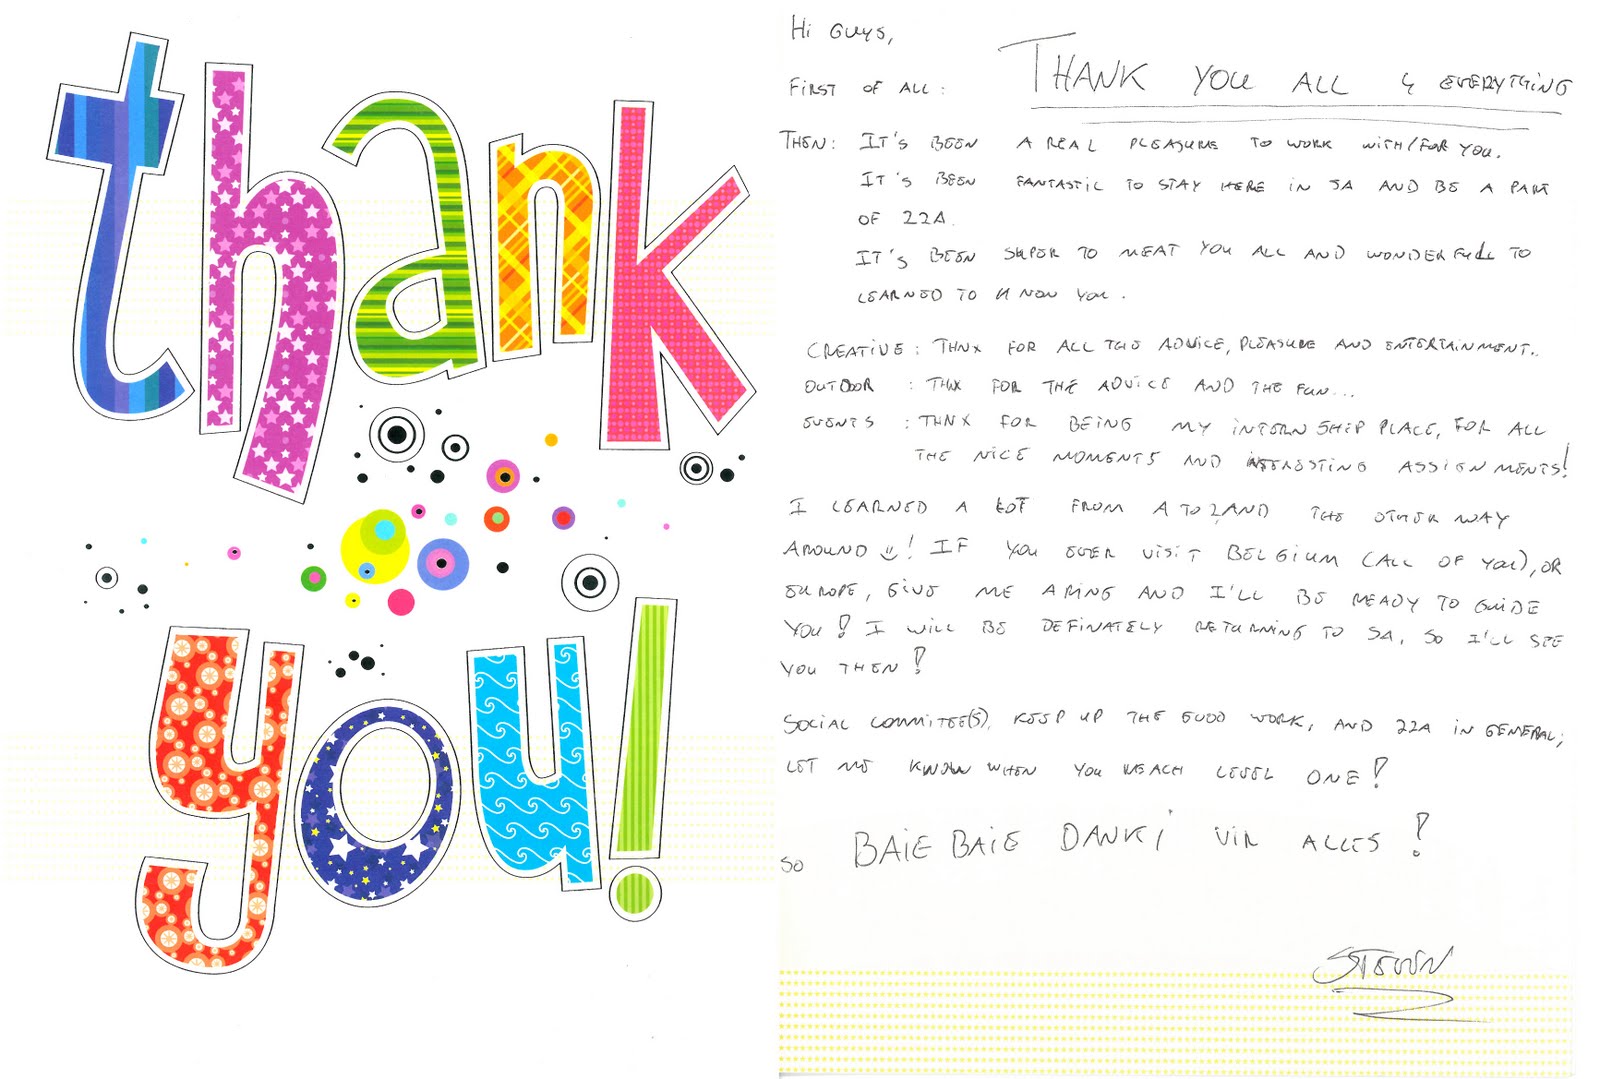 thank
you!
Hi GUYS,
FIRST OF ALL : THANK YOU ALL 4 EVERYTHING
THEN : IT'S BEEN A REAL PLEASURE TO WORK WITH/FOR YOU.
IT'S BEEN FANTASTIC TO STAY HERE IN SA AND BE A PART
OF 22A.
IT'S BEEN SUPER TO MEAT YOU ALL AND WONDERFULL TO
LEARNED TO KNOW YOU.
CREATIVE : THNX FOR ALL THE ADVICE, PLEASURE AND ENTERTAINMENT..
OUTDOOR : THNX FOR THE ADVICE AND THE FUN...
EVENTS : THNX FOR BEING MY INTERNSHIP PLACE, FOR ALL
THE NICE MOMENTS AND INTERESTING ASSIGNMENTS!
I LEARNED A LOT FROM A TO Z, AND THE OTHER WAY
AROUND ! IF YOU EVER VISIT BELGIUM (ALL OF YOU), OR
EUROPE, GIVE ME A RING AND I'LL BE READY TO GUIDE
YOU! I WILL BE DEFINATELY RETURNING TO SA, SO I'LL SEE
YOU THEN!
SOCIAL COMMITEE(S), KEEP UP THE GOOD WORK, AND 22A IN GENERAL;
LET ME KNOW WHEN YOU REACH LEVEL ONE!
SO BAIE BAIE DANKI VIR ALLES!
STEVEN